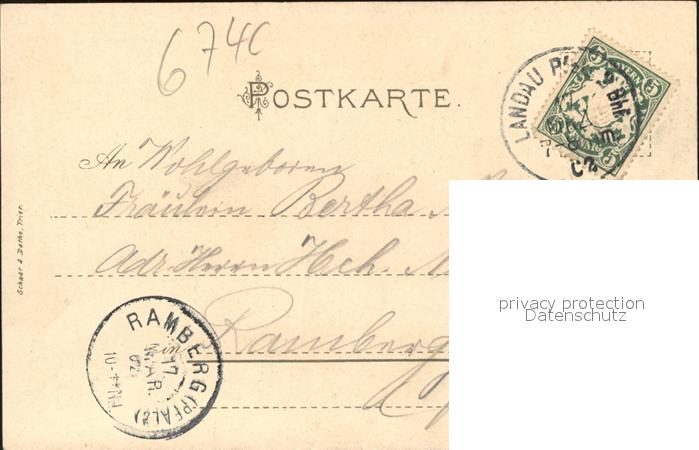 674C
POSTKARTE.
LANDAU
BAYERN
5
An Wohlgeboren
Fräulein Bertha
Adr. Herrn Hch.
in Ramberg
Schaar & Dathe, Trier.
RAMBERG
17
MAR.
(PFALZ)
privacy protection
Datenschutz